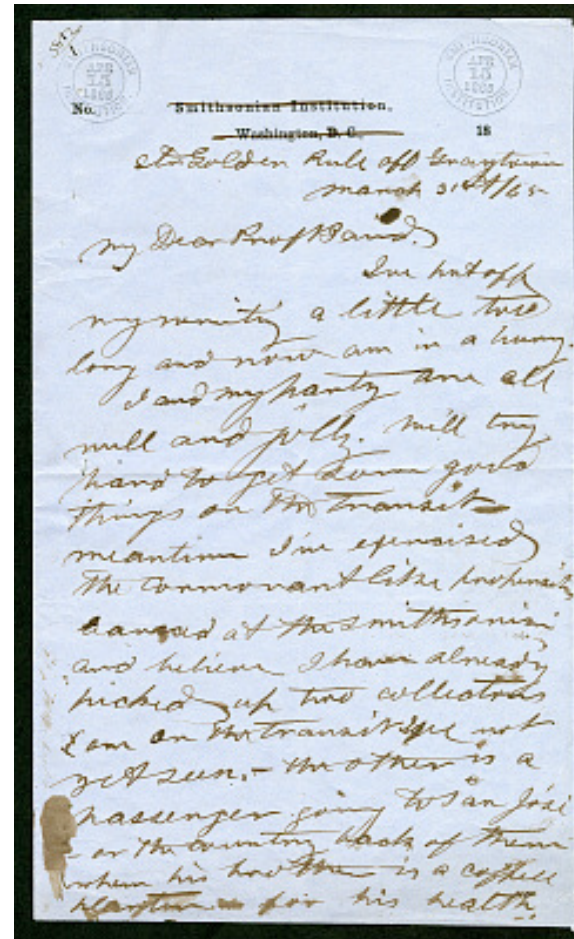 SMITHSONIAN INSTITUTION APR 15 1865
SMITHSONIAN INSTITUTION APR 15 1865
No. Smithsonian Institution,
Washington, D. C. 18
Str Golden Rule off Graytown
March 31st/65
My Dear Prof Baird.
I've put off
my writing a little too
long and now am in a hurry.
I and my party are all
well and jolly. Will try
hard to get some good
things on the transit
meantime I've exercised
the cormorant like propensity
learned at the Smithsonian
and believe I have already
picked up two collectors
one on the transit not
yet seen. - the other is a
passenger going to San José
- or the country back of there
where his brother is a coffee
planter - for his health.